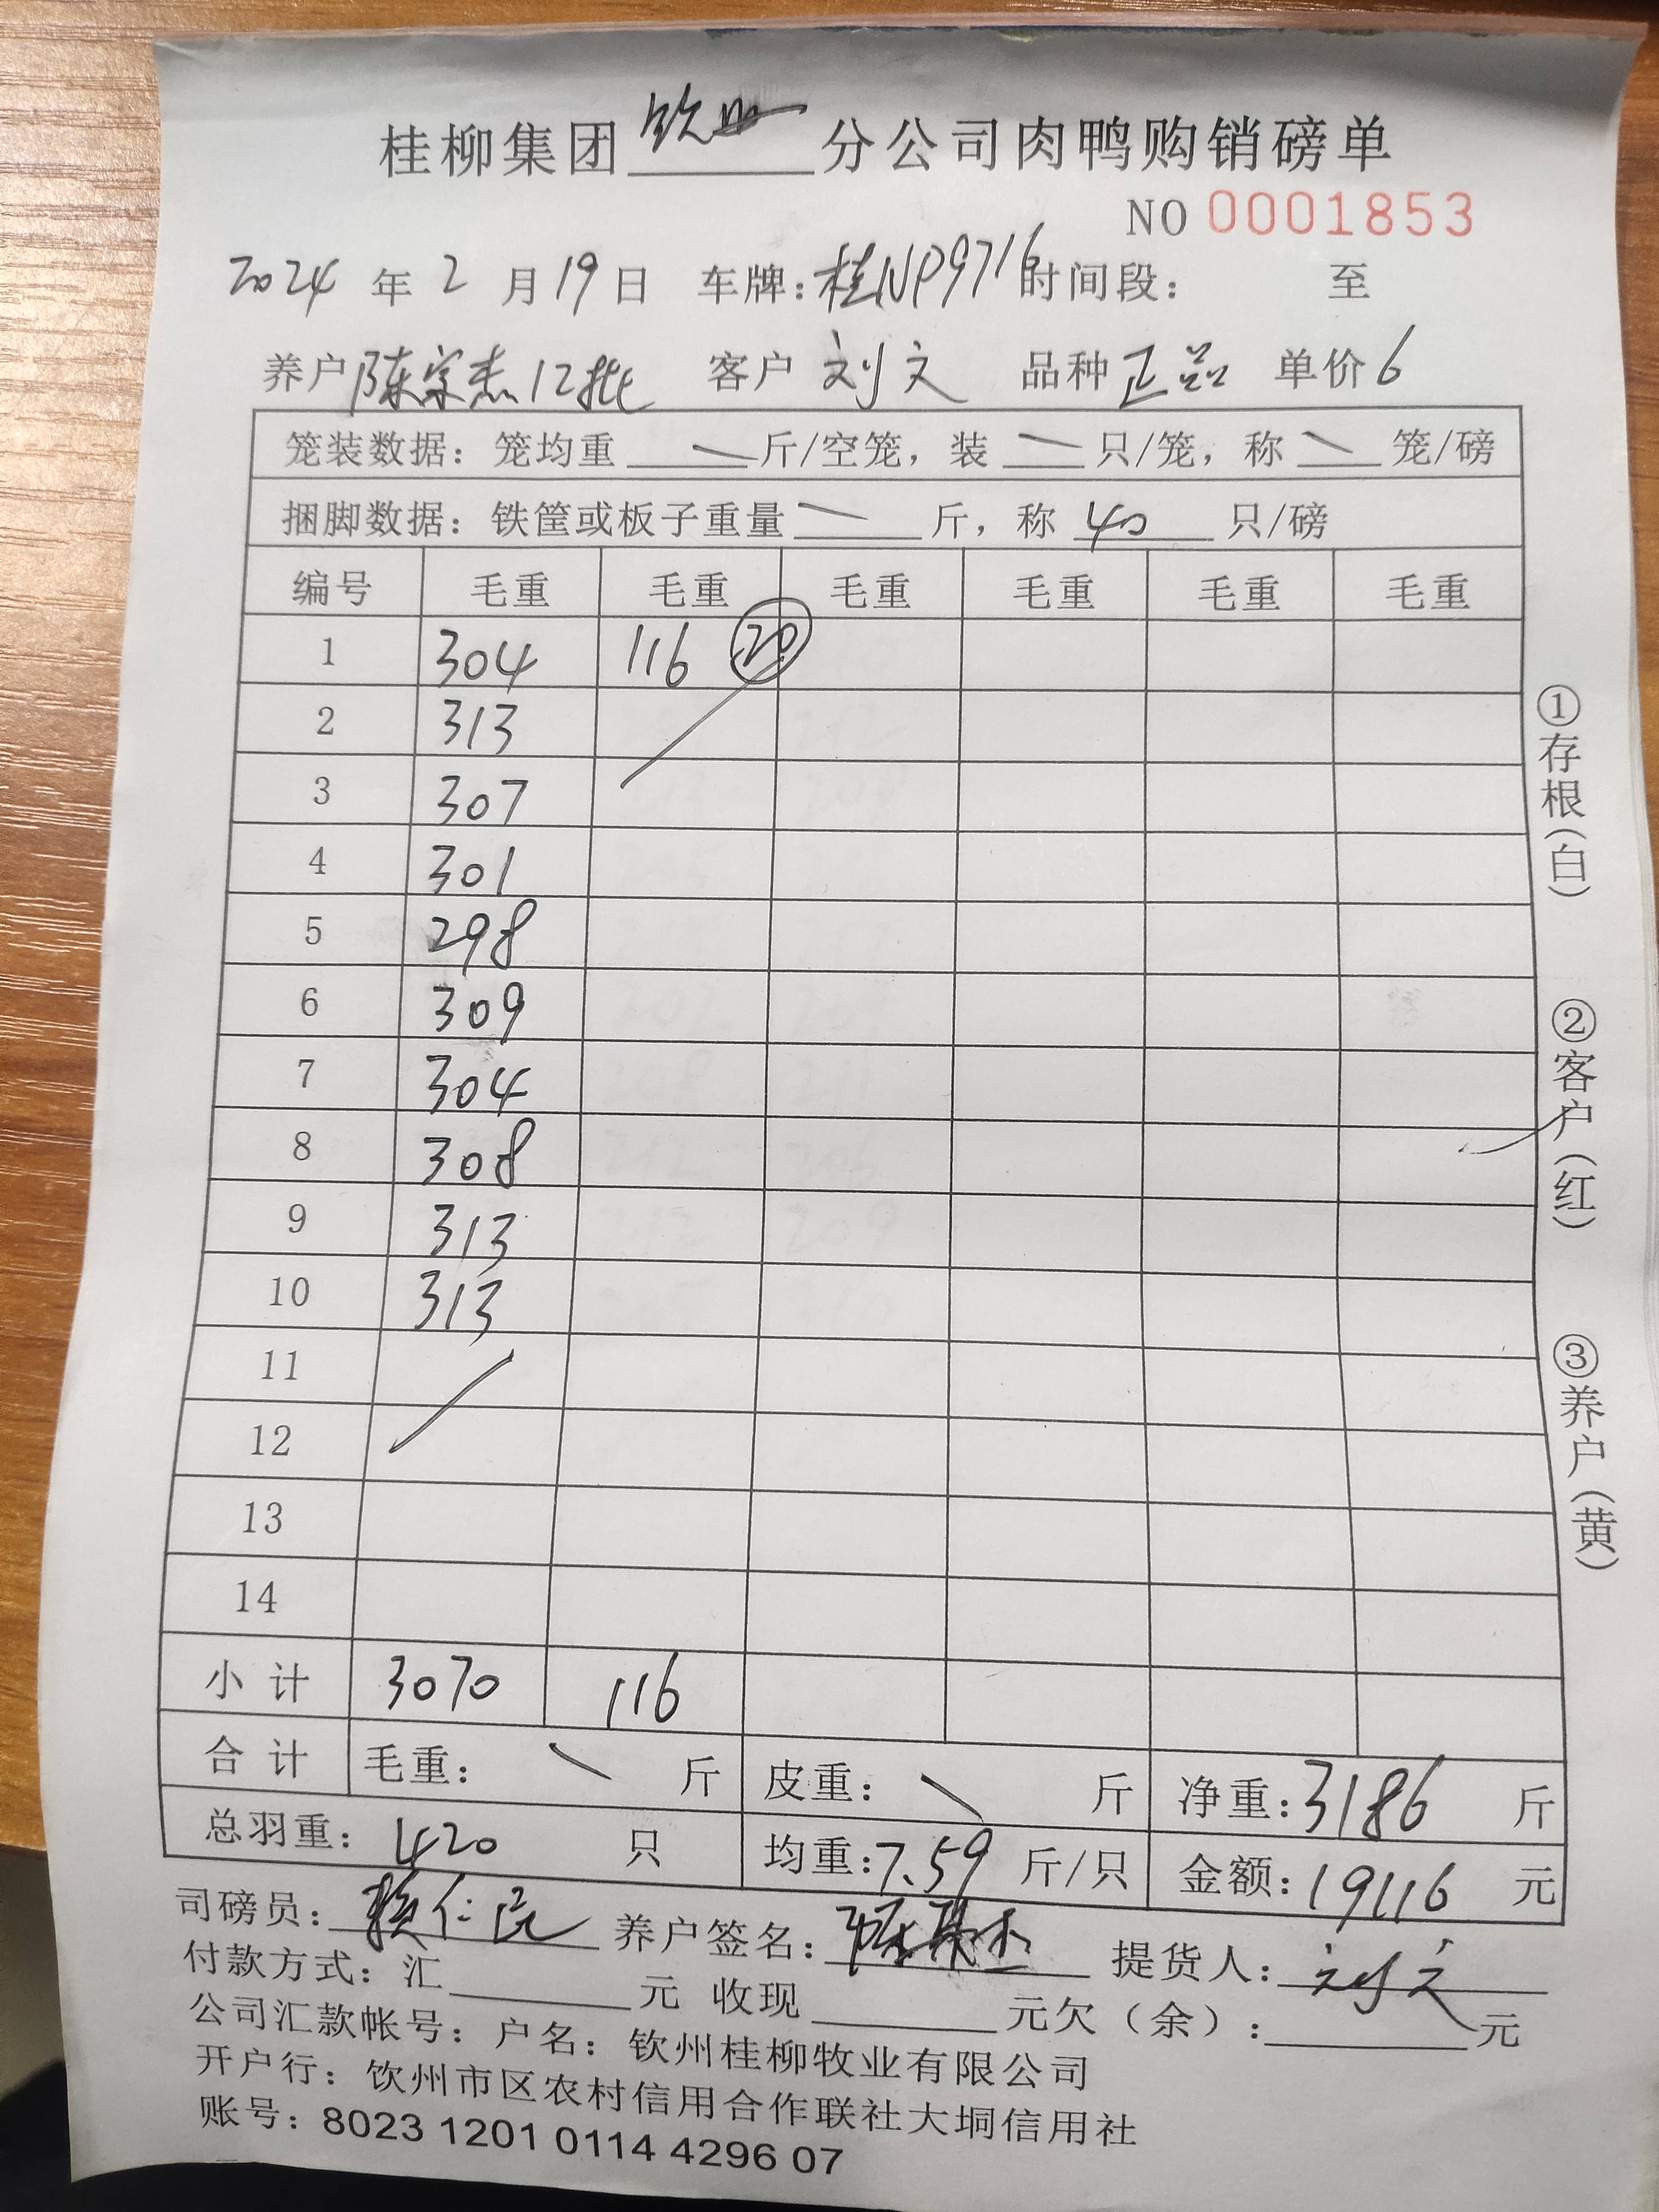 桂柳集团 钦州 分公司肉鸭购销磅单
NO 0001853
2024 年 2 月 19 日 车牌:桂NP9716 时间段: 至
养户 陈宗杰12批 客户 刘文 品种 正品 单价 6
笼装数据:笼均重 \ 斤/空笼,装 \ 只/笼,称 \ 笼/磅
捆脚数据:铁筐或板子重量 \ 斤,称 40 只/磅
编号 毛重 毛重 毛重 毛重 毛重 毛重
1 304 116 20
2 313
3 307
4 301
5 298
6 309
7 304
8 308
9 313
10 313
11
12
13
14
小计 3070 116
合计 毛重: \ 斤 皮重: \ 斤 净重:3186 斤
总羽重: 420 只 均重:7.59 斤/只 金额:19116 元
司磅员: 养户签名: 提货人: 刘文
付款方式:汇 元 收现 元欠(余): 元
公司汇款帐号:户名:钦州桂柳牧业有限公司
开户行:钦州市区农村信用合作联社大垌信用社
账号:8023 1201 0114 4296 07
①存根(白)
②客户(红)
③养户(黄)